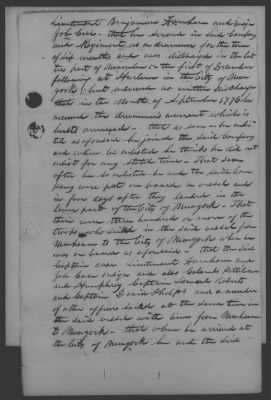 Lieutenant Benjamin Farnham and Ensign
Job Case - that he served in said Company
and Regiment as a drummer for the term
of six months and was discharged in the lat-
ter part of November or the first of December
following at Harlem in the City of New
york (but received no written discharge
that in the Month of September 1776 he
received the drummer's warrant which is
hereto annexed - that as soon as enlis-
ted as aforesaid he joined the said Company
and when he enlisted he thinks he did not
enlist for any stated time - That soon
after he so enlisted he and the said Com-
pany were put on board a vessel and
in four days after they landed in the
lower part of the City of Newyork - That
there were three hundred or more of the
troops who sailed in the said vessel from
to the City of Newyork when he
was on board as aforesaid - that the said
Captain Case Lieutenant Farnham and
Job Case ensign and also Colonels Pettibone
and Humphrey Captain Lemuel Roberts
and Captain David Phelps and a number
of other officers sailed at the same time in
the said vessel with him from
to Newyork - that when he arrived at
the City of Newyork he and the said